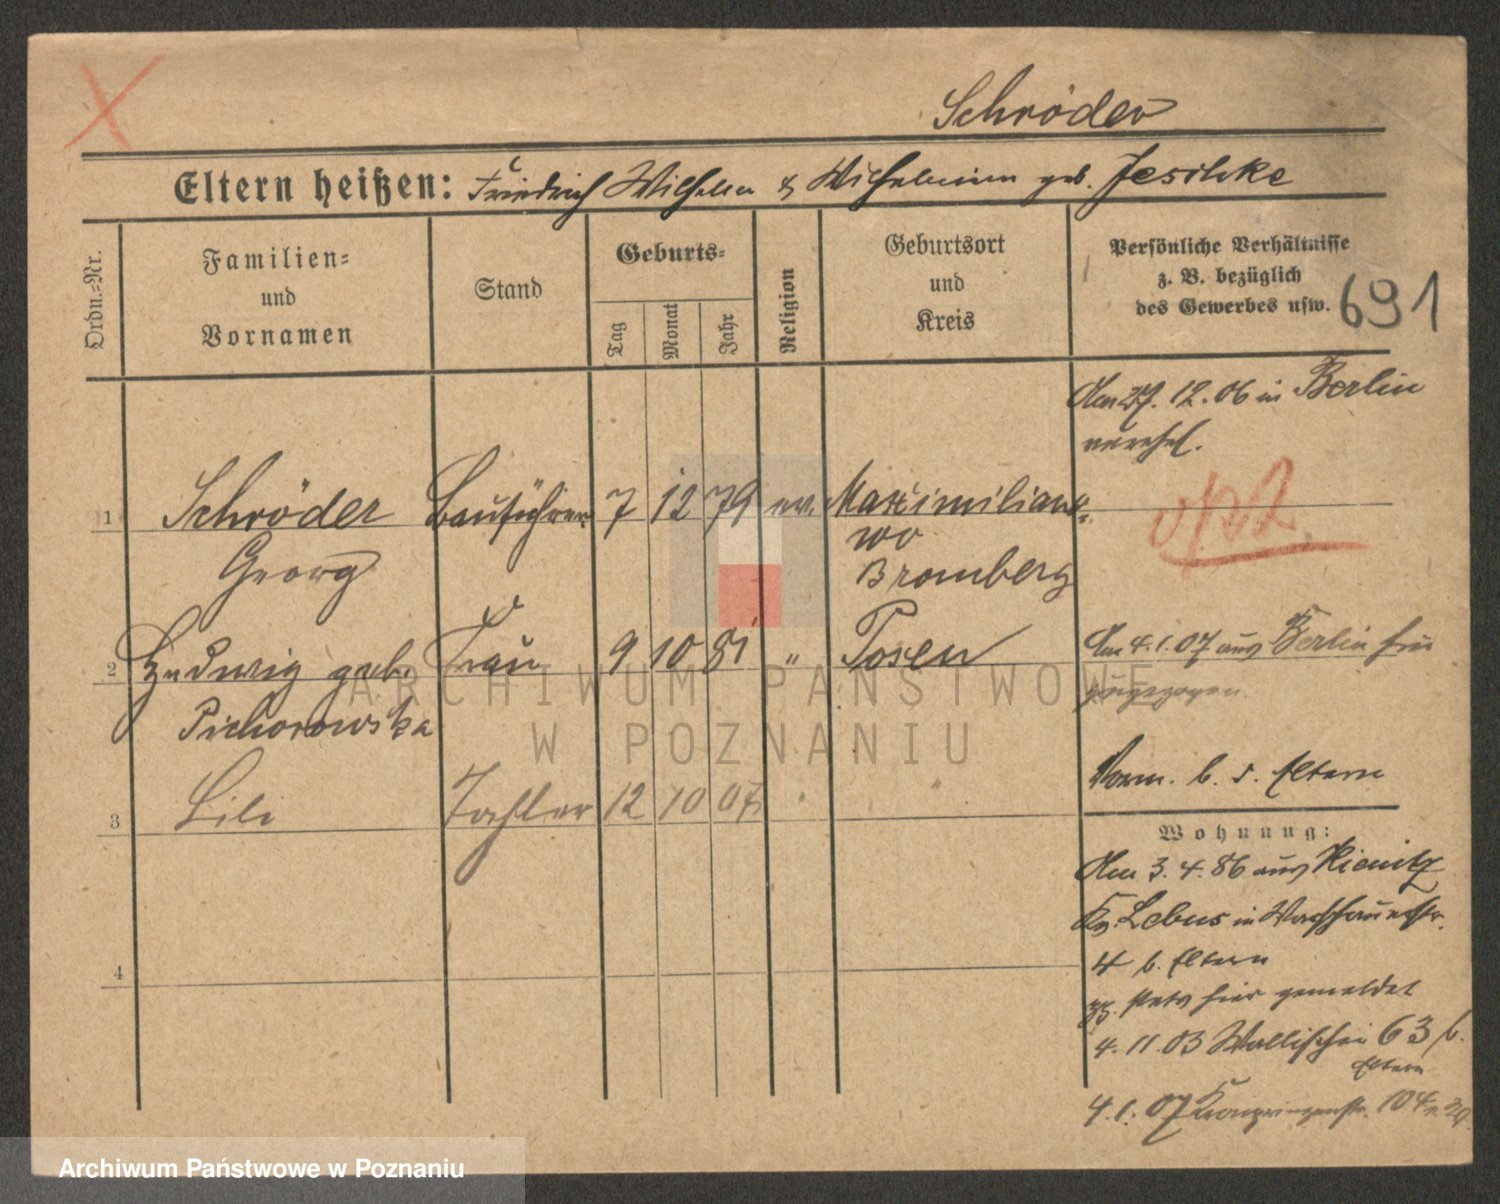 Schröder
Eltern heißen: Friedrich Wilhelm & Wilhelmine geb. Jeschke
Ordn.-Nr.
Familien-
und
Vornamen
Stand
Geburts-
Tag
Monat
Jahr
Religion
Geburtsort
und
Kreis
Persönliche Verhältnisse
z. B. bezüglich
des Gewerbes usw.
691
Am 27. 12. 06 in Berlin
verehel.
1 Schröder Bauführer 7 12 79 ev. Maximilian
Georg
wo
Bromberg
2 Hedwig geb. Frau 9 10 81 " Posen
Pichorowska
Am 4.1.07 aus Berlin hier
zugezogen.
3 Lili Tochter 12 10 07 " "
Vorm. b. d. Eltern
Wohnung:
Am 3. 4. 86 aus Kienitz
Kr. Lebus in Warschauerstr.
4 b. Eltern
stets hier gemeldet
4. 11. 03 Wallischei 63 b.
Eltern
4. 1. 07 Kronprinzenstr. 104
4
ARCHIWUM PAŃSTWOWE
W POZNANIU
Archiwum Państwowe w Poznaniu